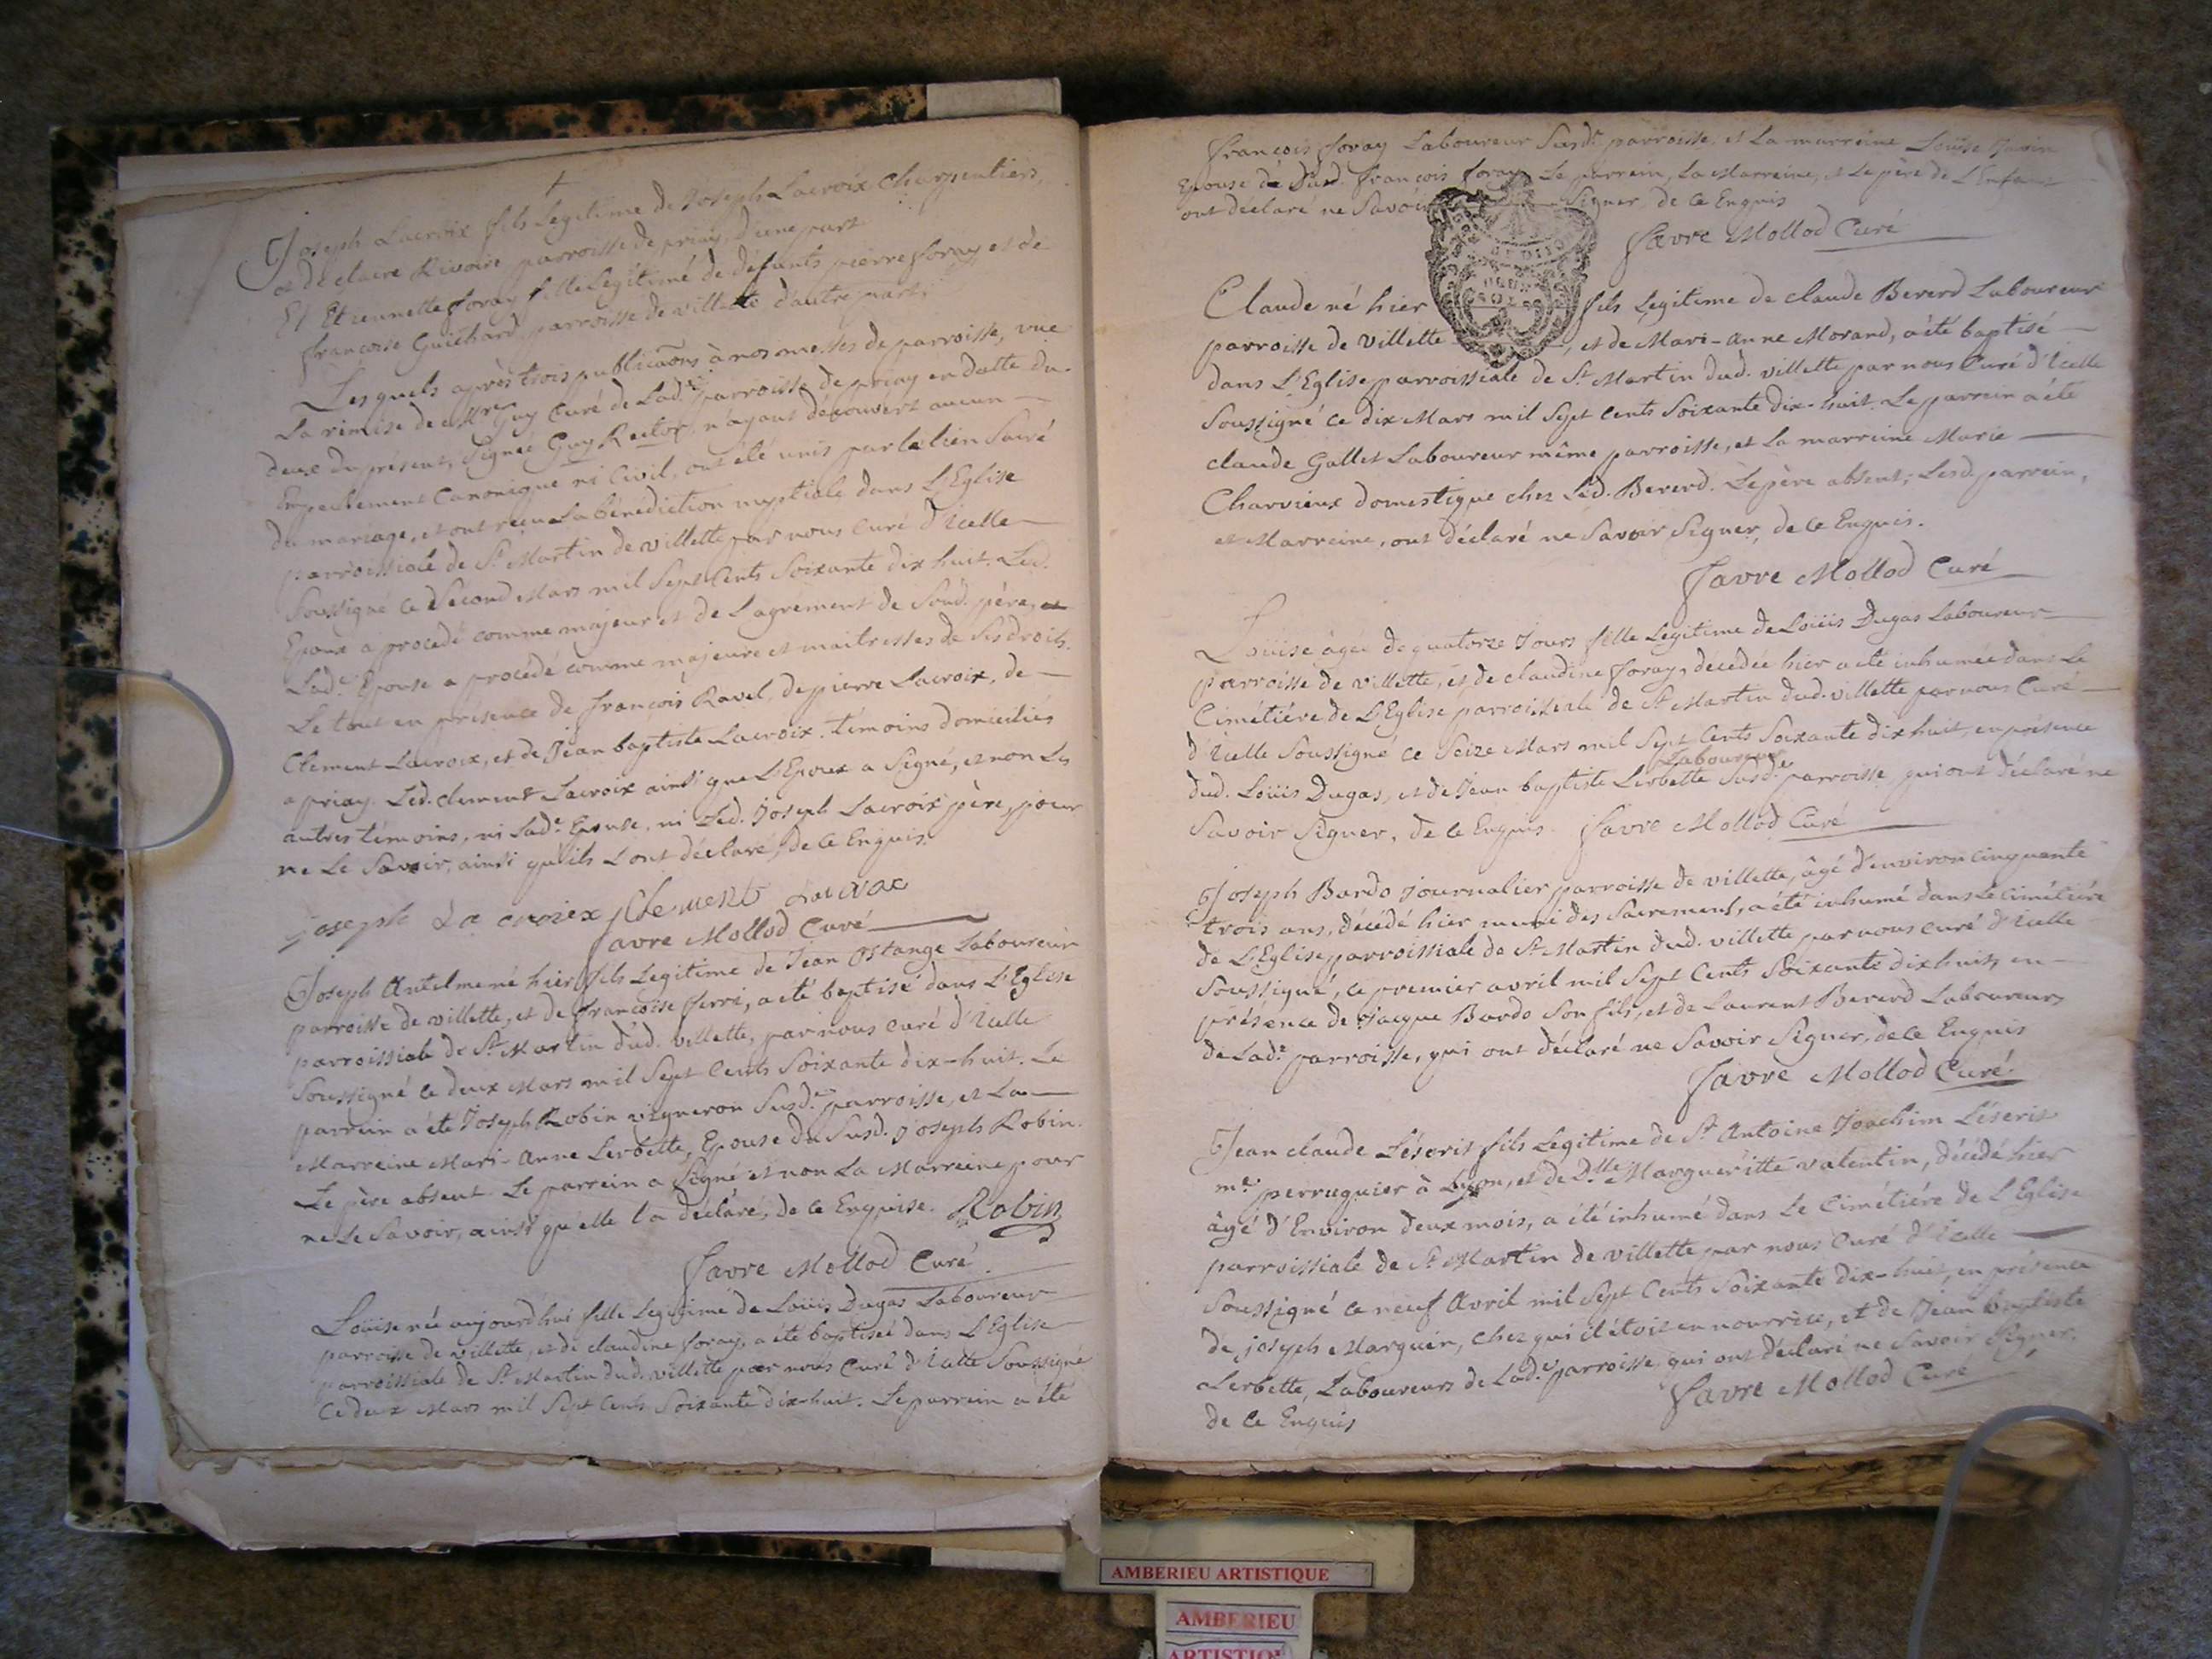 +
Joseph Lacroix fils Legitime de Joseph Lacroix Charpentiers,
et de claire Rivoire parroisse de priay, d'une part
Et Etiennette foray fille Legitime de defunts pierre foray et de
françoise Guichard, parroisse de villette d'autre part;
Lesquels après trois publicãons à nos messes de parroisse, vue
La rimise de Mre Guy Curé de Lad.e parroisse de priay en datte du
deux du présent, Signée Guy Rector, n'ayant découvert aucun
Empechement Canonique ni Civil, ont été unis par le lien Sacré
du mariage, et ont reçu La bénédiction nuptiale dans L'Eglise
parroissiale de St Martin de villette par nous curé d'Icelle
Soussigné ce Second Mars mil Sept Cents Soixante dix huit. Led.
Epoux a procedé comme majeur et de L'agrément de Sond. père, et
Lad.e Epouse a procédé comme majeure et maitresses de Ses droits.
Le tout en présence de françois Ravel, de pierre Lacroix, de
Clement Lacroix, et de Jean baptiste Lacroix témoins domiciliés
a priay. Led. clement Lacroix ainsi que L'Epoux a Signé, et non Les
autres témoins, ni Lad.e Epouse, ni Led. Joseph Lacroix père, pour
ne Le Savoir, ainsi qu'ils L'ont déclaré, de ce Enquis.
Joseph La croiex Clement
favre Mollod Curé
Joseph Antelme né hier fils Legitime de Jean Ostange Laboureur
parroisse de villette, et de françoise ferri, a été baptisé dans L'Eglise
parroissiale de St Martin dud. villette, par nous curé d'Icelle
Soussigné ce deux Mars mil Sept Cents Soixante dix-huit. Le
parrein a été Joseph Robin vigneron Susd.e parroisse, et La
Marreine Mari-Anne Lerbette, Epouse du Susd. Joseph Robin.
Le père absent. Le parrein a Signé et non La Marreine pour
ne Le Savoir, ainsi qu'elle la déclaré, de ce Enquise. Robin
favre Mollod Curé.
Loüise née aujourd'hui fille Legitime de Loüis Dugas Laboureur
parroisse de villette, et de claudine foray, a été baptisée dans L'Eglise
parroissiale de St Martin dud. villette par nous Curé d'Icelle Soussigné
Ce deux Mars mil Sept Cents Soixante dix-huit. Le parrein a été
françois foray Laboureur Susd.e parroisse, et La marreine Loüise
Epouse de Dud. françois foray. Le parrein, La Marreine, et Le père de L'Enfant
ont déclaré ne Savoir Signer de ce Enquis
favre Mollod Curé
Claude né hier fils Legitime de claude Bererd Laboureur
parroisse de villette, et de Mari-Anne Morand, a été baptisé
dans L'Eglise parroissiale de St Martin dud. villette par nous Curé d'Icelle
Soussigné ce dix Mars mil Sept Cents Soixante dix-huit. Le parrein a été
claude Gallet Laboureur même parroisse, et La marreine Marie
Charvieux domestique chez Led. Bererd. Le père absent; Lesd. parrein,
et Marreine, ont déclaré ne Savoir Signer, de ce Enquis.
favre Mollod Curé
Loüise âgée de quatorze Jours fille Legitime de Loüis Dugas Laboureur
parroisse de villette, et de claudine foray, décédée hier a été inhumée dans Le
Cimétiére de L'Eglise parroissiale de St Martin dud. villette par nous Curé
d'Icelle Soussigné ce Seize Mars mil Sept Cents Soixante dix huit, en présence
Laboureur
dud. Loüis Dugas, et de Jean baptiste Lerbette Susd.e parroisse, qui ont déclaré ne
Savoir Signer, de ce Enquis. favre Mollod Curé
Joseph Bardo Journalier parroisse de villette, âgé d'environ cinquante
trois ans, décédé hier muni des Sacrement, a été inhumé dans Le cimétiére
de L'Eglise parroissiale de St Martin dud. villette par nous curé d'Icelle
Soussigné, ce premier avril mil Sept Cents Soixante dix huit, en
présence de Jacque Bardo Son fils, et de Laurent Bererd Laboureurs
de Lad.e parroisse, qui ont déclaré ne Savoir Signer, de ce Enquis
favre Mollod Curé
Jean claude Léserit fils Legitime de Sr Antoine Joachim Léserit
me perruquier à Lyon, et de Dlle Margueritte Valentin, décédé hier
âgé d'Environ deux mois, a été inhumé dans Le Cimétiére de L'Eglise
parroissiale de St Martin de villette par nous Curé d'Icelle
Soussigné ce neuf Avril mil Sept Cents Soixante dix-huit, en présence
de Joseph Marguin, chez qui il étoit en nourrice, et de Jean baptiste
Lerbette, Laboureurs de Lad.e parroisse qui ont déclaré ne Savoir Signer,
de ce Enquis favre Mollod Curé
AMBERIEU ARTISTIQUE
AMBERIEU
ARTISTIQUE